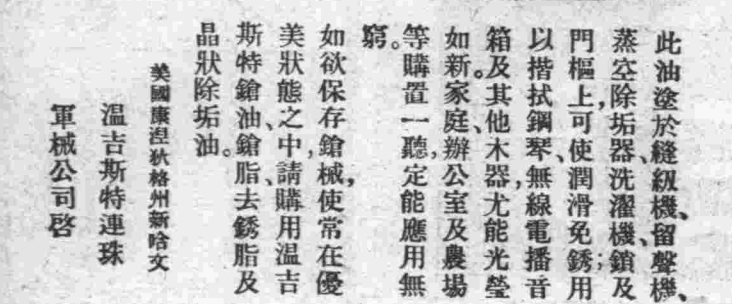 此油塗於縫紉機、留聲機、
蒸空除垢器、洗濯機、鎖及
門樞上,可使潤滑免銹;用
以揩拭鋼琴、無線電播音
箱及其他木器,尤能光瑩
如新。家庭、辦公室及農場
等購置一聽,定能應用無
窮。
如欲保存鎗械,使常在優
美狀態之中,請購用温吉
斯特鎗油、鎗脂、去銹脂及
晶狀除垢油。
美國康涅狄格州新哈文
温吉斯特連珠
軍械公司啓